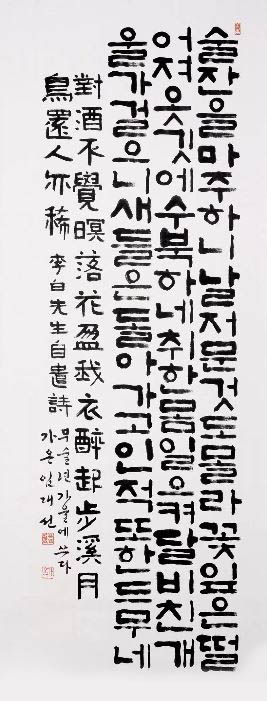 술잔을마주하니날저문것도몰라꽃잎은떨
어져옷깃에수북하네취한몸일으켜달비친개
울가걸으니새들은돌아가고인적또한드무네
對酒不覺暝落花盈我衣醉起步溪月
鳥還人亦稀 李白先生自遣詩
무술년가을에쓰다
가온임대선